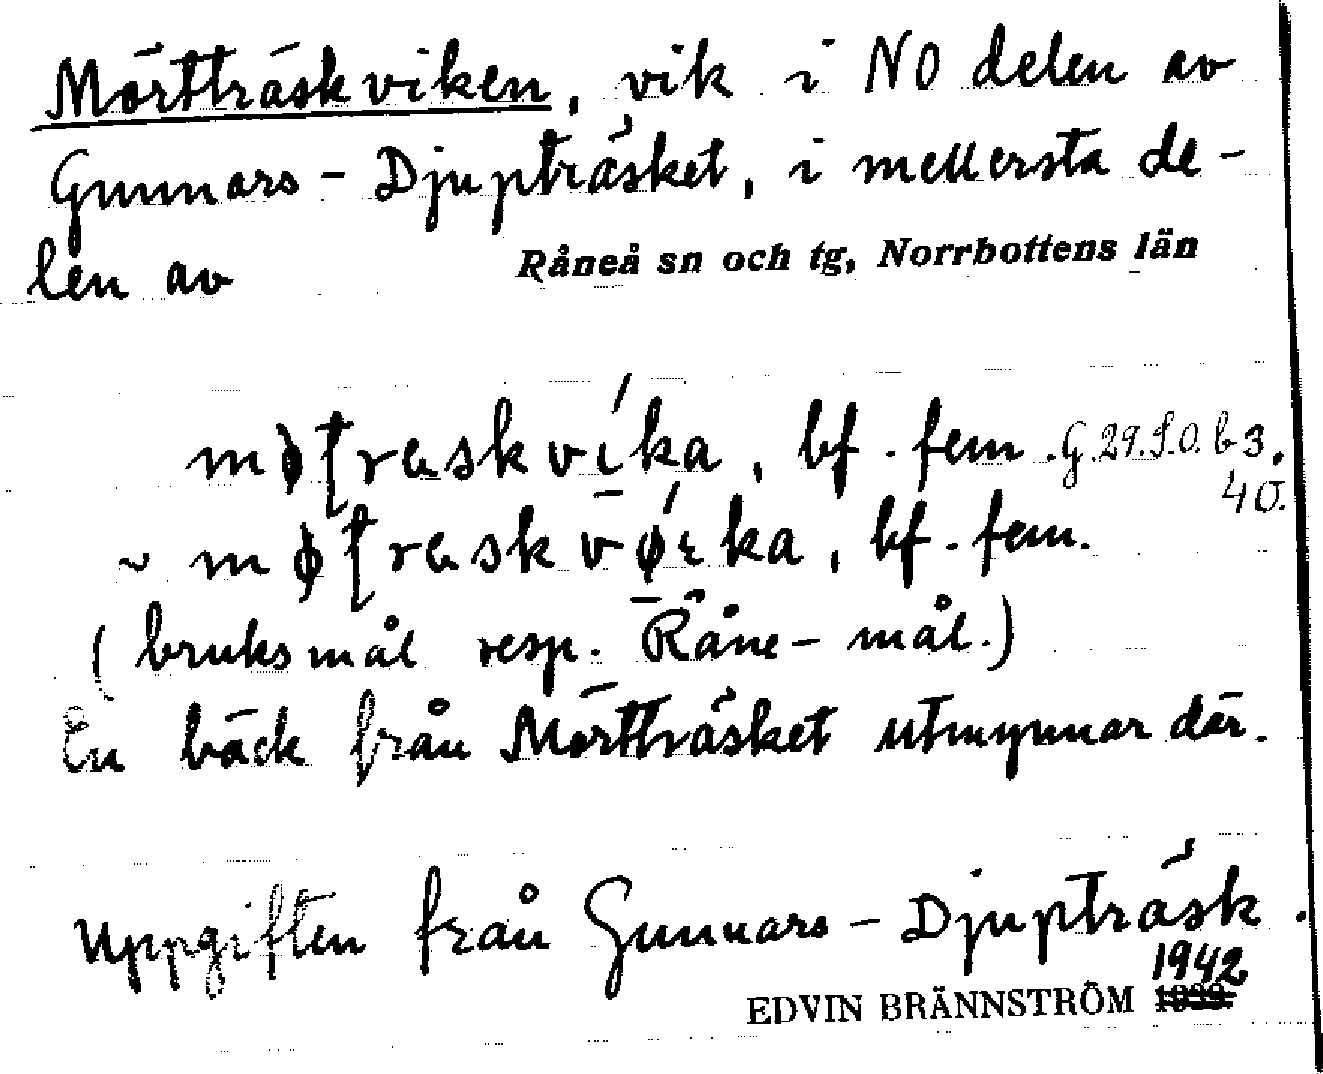 Mörtträskviken, vik i NO delen av
Gunnars-Djupträsket, i mellersta de-
len av Råneå sn och tg, Norrbottens län
bf. fem. G.29.S.O. b 3.
40.
~ bf. fem.
(bruksmål resp. Råne-mål.)
En bäck från Mörtträsket utmynnar där.
Uppgiften från Gunnars-Djupträsk.
1942
EDVIN BRÄNNSTRÖM